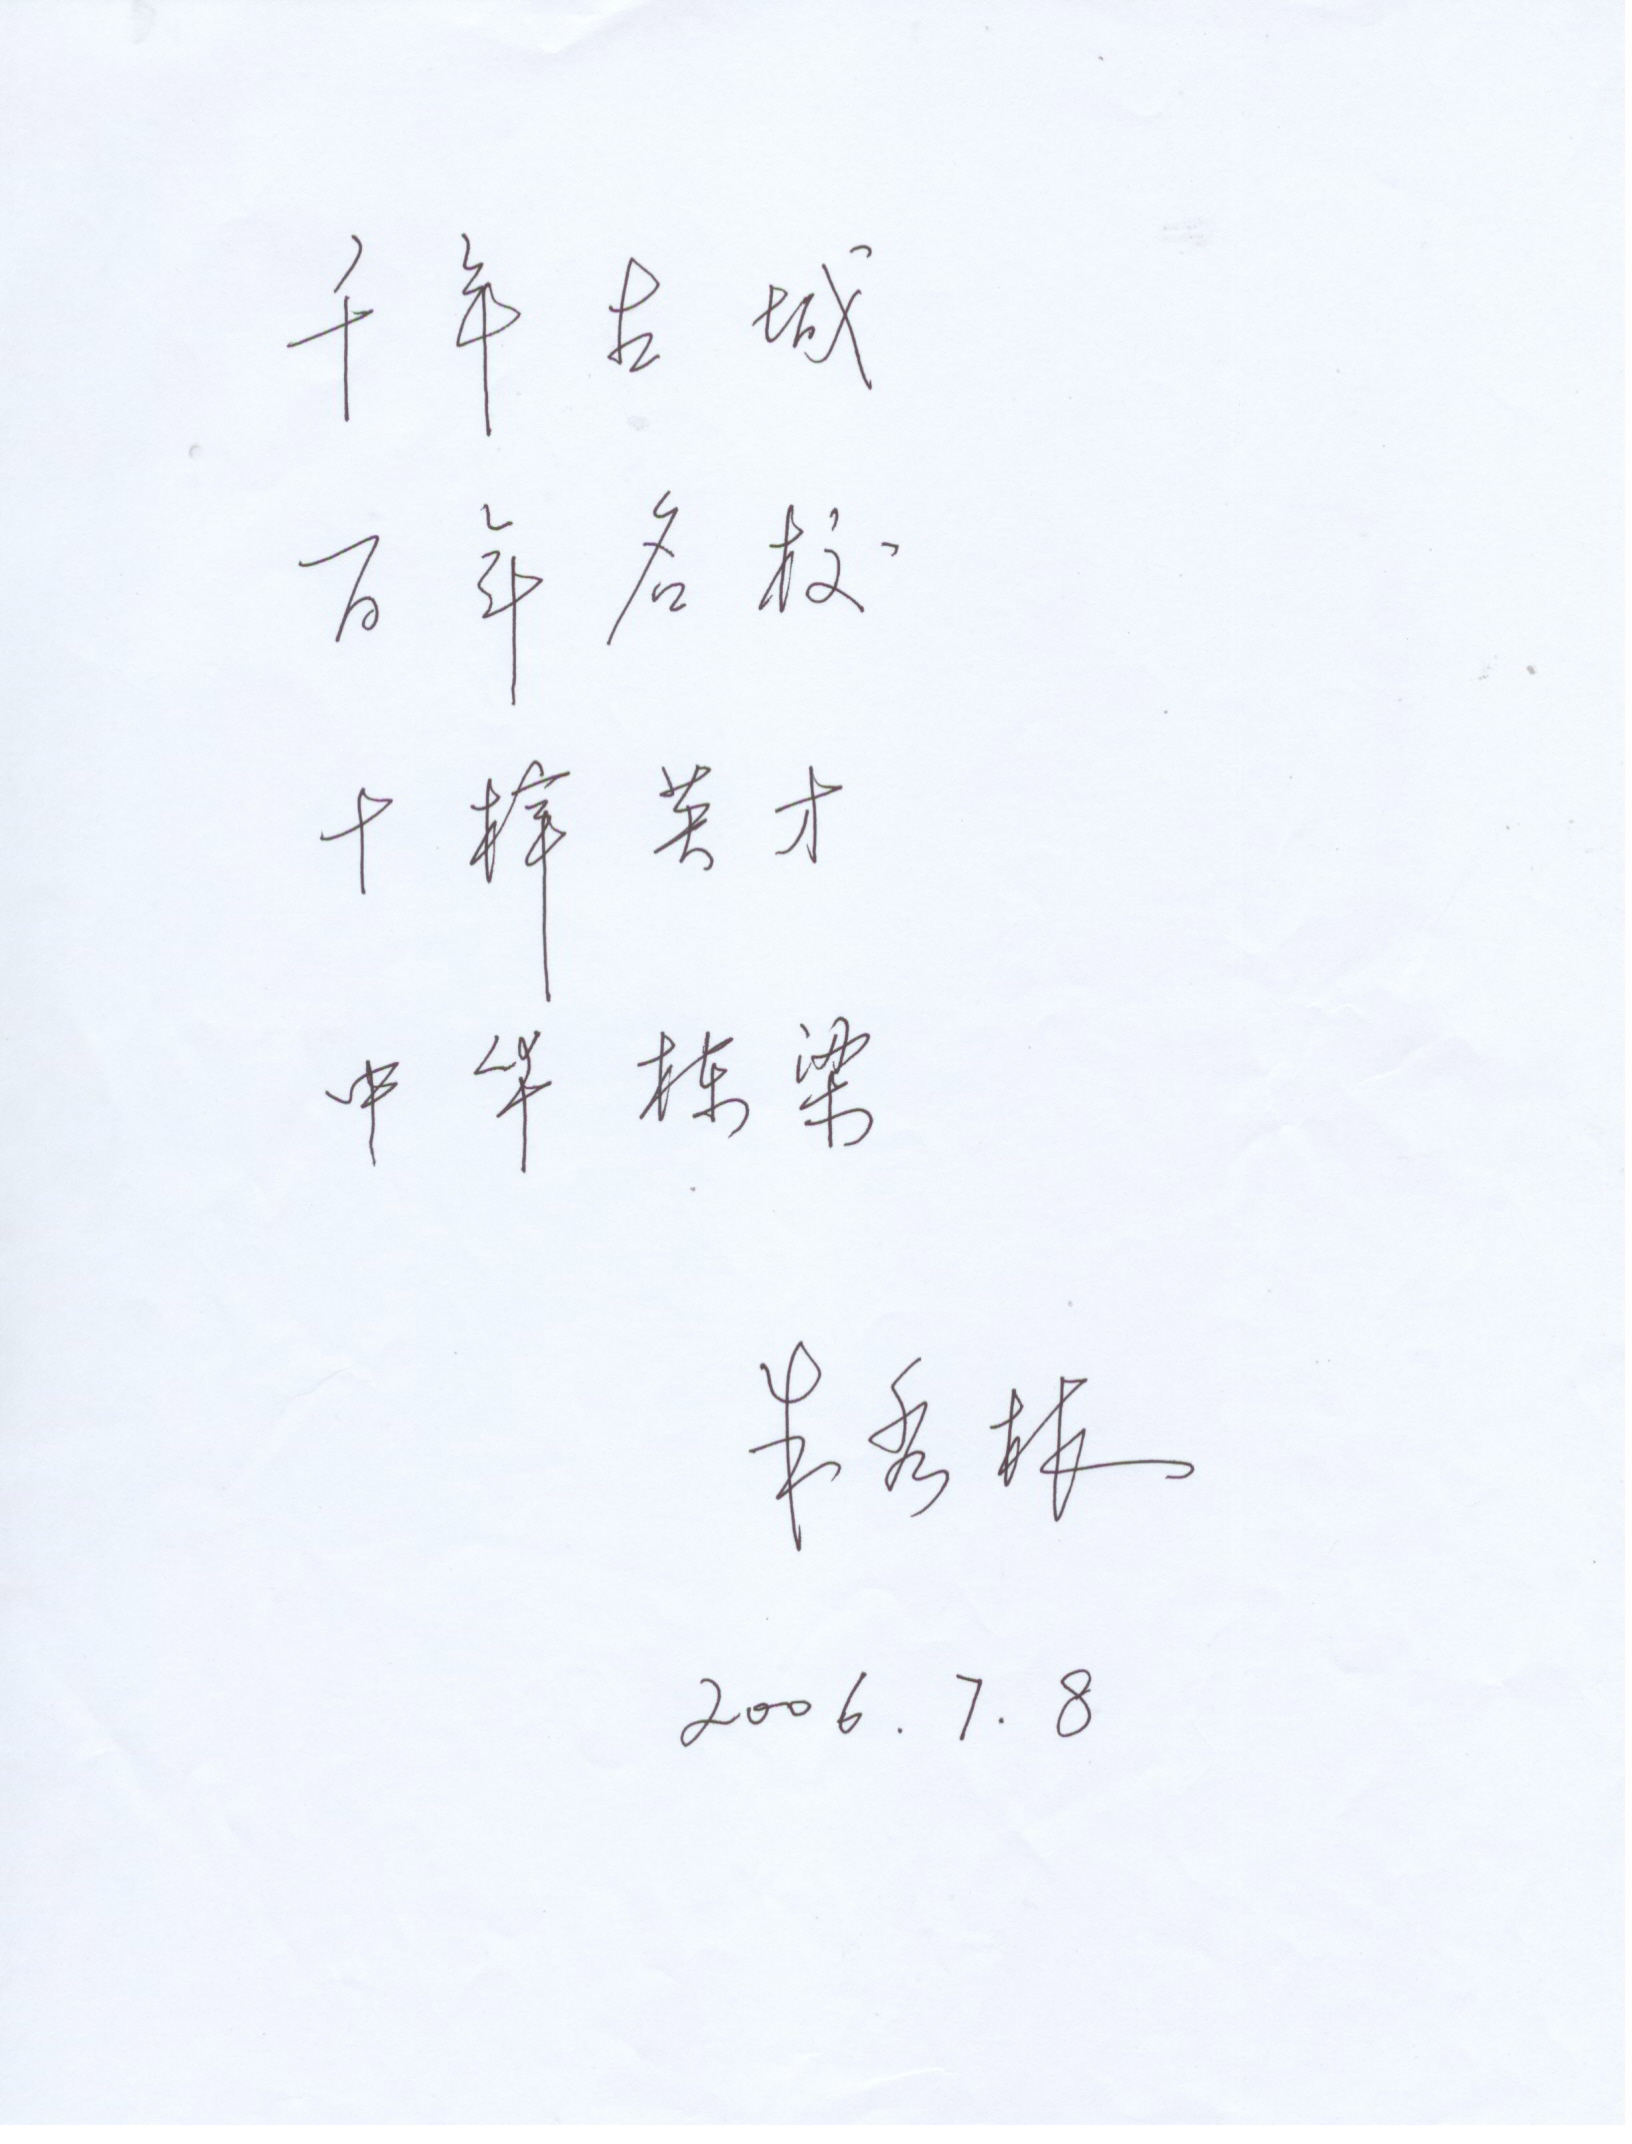 千年古城
百年名校
十梓英才
中华栋梁
朱秀林
2006.7.8